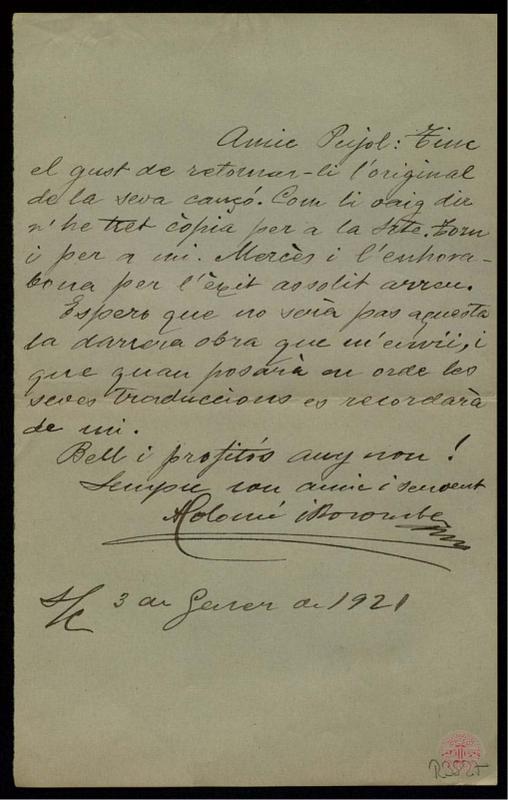 Amic Pujol: Tinc
el gust de retornar-li l'original
de la seva cançó. Com li vaig dir
n'he tret còpia per a la Srte. Torn
i per a mi. Mercès i l'enhora-
bona per l'èxit assolit arreu.
Espero que no serà pas aquesta
la darrera obra que m'enviï, i
que quan posarà en orde les
seves traduccions es recordarà
de mi.
Bell i profitós any nou!
Sempre son amic i servent
S/C 3 de Gener de 1921
R3827